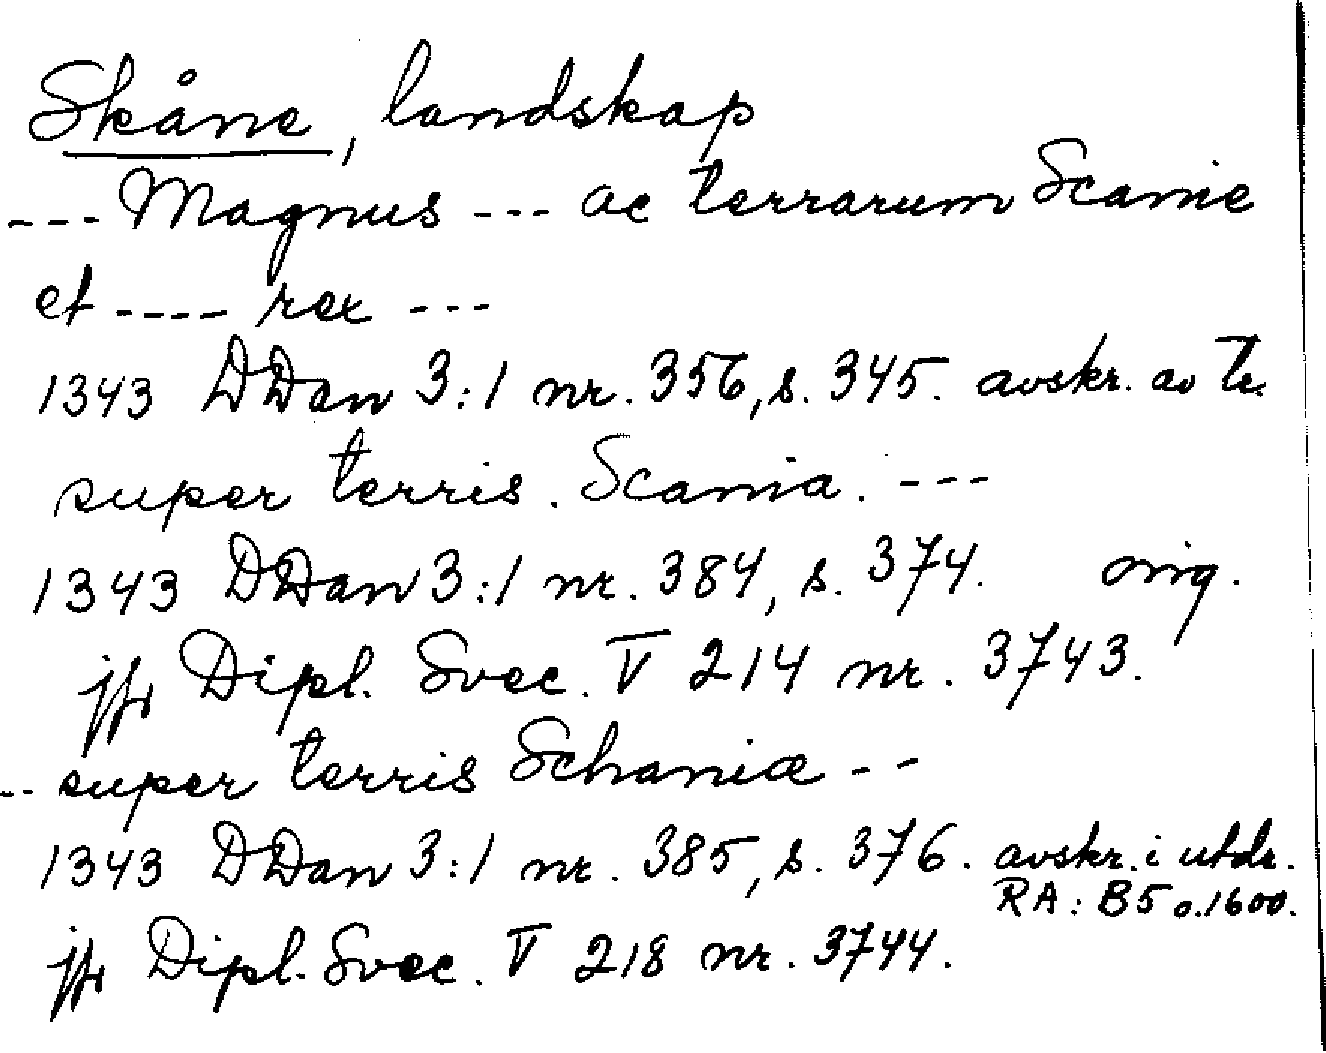 Skåne, landskap
--- Magnus --- ac terrarum Scanie
et ---- rex ---
1343 DDan 3:1 nr. 356, s. 345. avskr. av tr.
super terris. Scania. ---
1343 DDan 3:1 nr. 384, s. 374. orig.
jfr Dipl. Svec. V 214 nr. 3743.
-- super terris Schaniæ --
1343 DDan 3:1 nr. 385, s. 376. avskr. i utdr.
RA: B5 o. 1600.
jfr Dipl. Svec. V 218 nr. 3744.